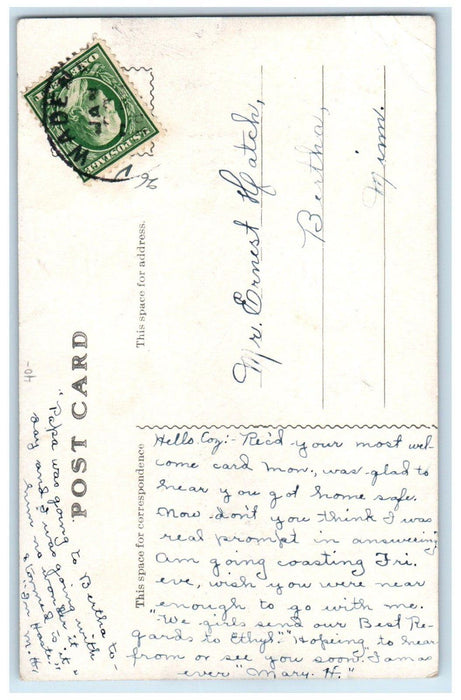 POST CARD
This space for address.
This space for correspondence
ONE CENT
WADENA
JAN
96
40-
Mr. Ernest Hatch,
Bertha,
Minn.
Hello Coz:- Rec'd your most wel-
come card Mon., was glad to
hear you got home safe.
Now don't you think I was
real prompt in answering
Am going coasting Fri.
eve, wish you were near
enough to go with me.
"We girls send our Best Re-
gards to Ethyl." "Hopeing to hear
from or see you soon, I am as
ever "Mary H."
"Papa was going to Bertha to-
day and I was going with
him no wonder it
stormed is it."
Haste.
M. H.